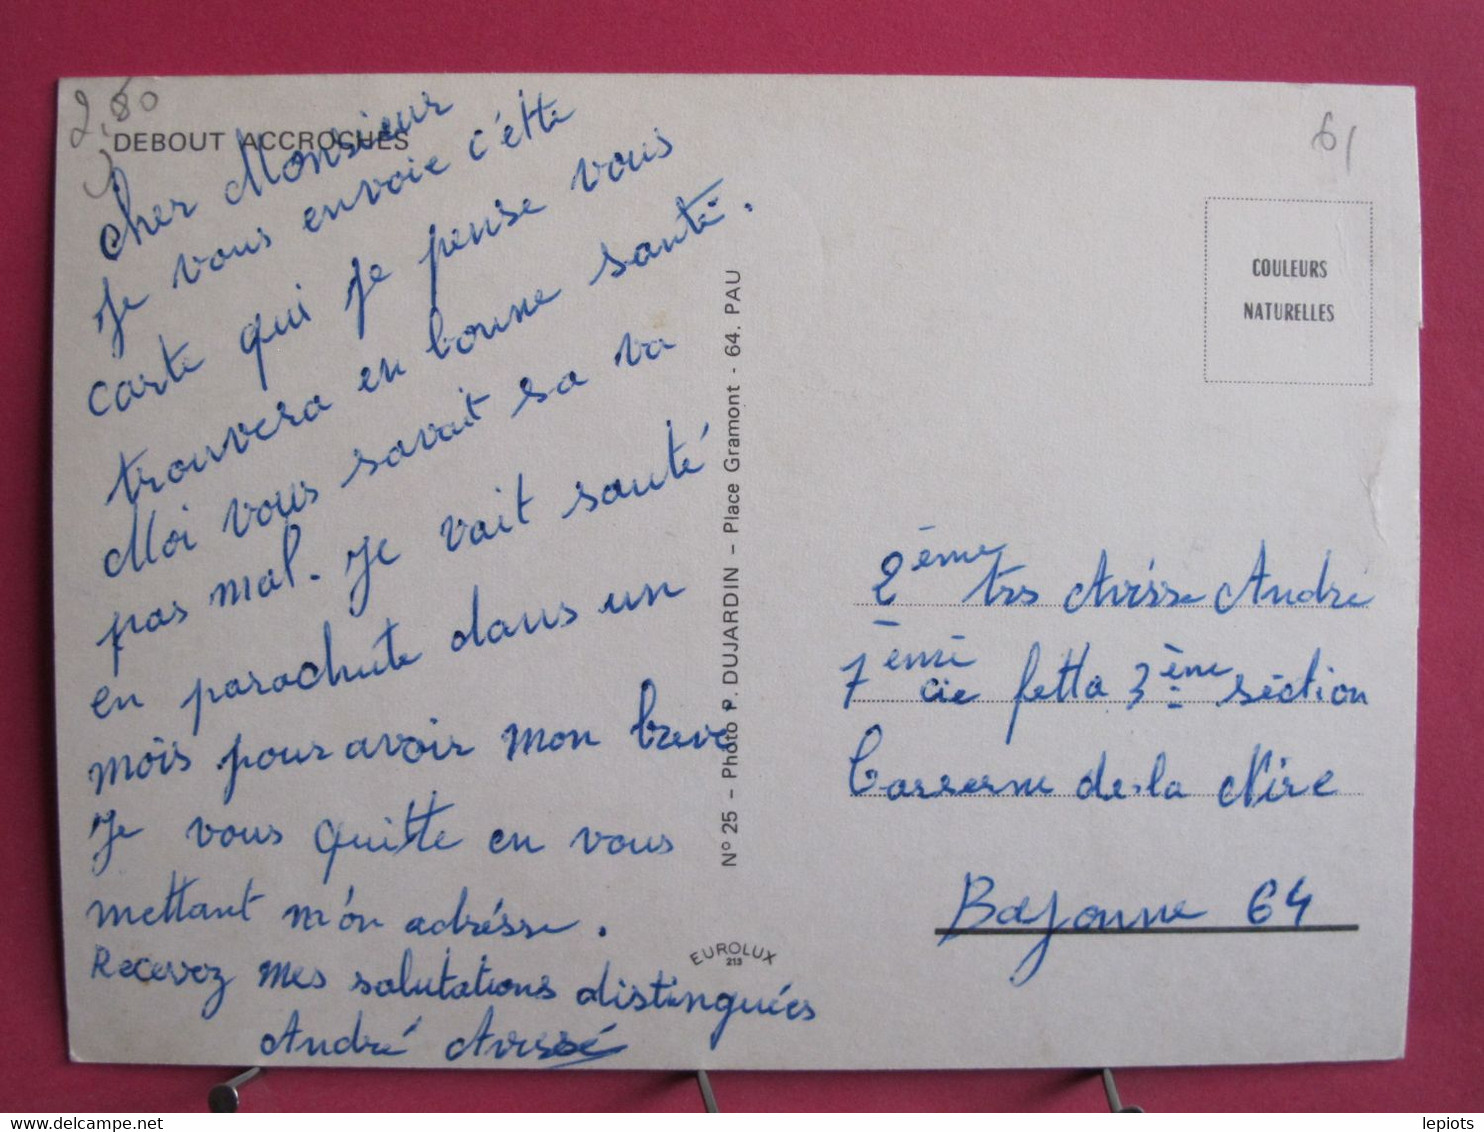 2,80
61
DEBOUT ACCROCHES
Cher Monsieur
Je vous envoie c'ètte
carte qui je pense vous
trouvera en bonne santé.
Moi vous savait sa va
pas mal. Je vait santé
en parachute dans un
mois pour avoir mon brevé
Je vous quitte en vous
mettant món adrésse.
Recevez mes salutations distinguées
André Avissé
N° 25 – Photo P. DUJARDIN – Place Gramont - 64. PAU
EUROLUX
213
COULEURS
NATURELLES
2ème André
7ème cie 3ème séction
Casserne de la Nive
Bayonne 64
lepiots